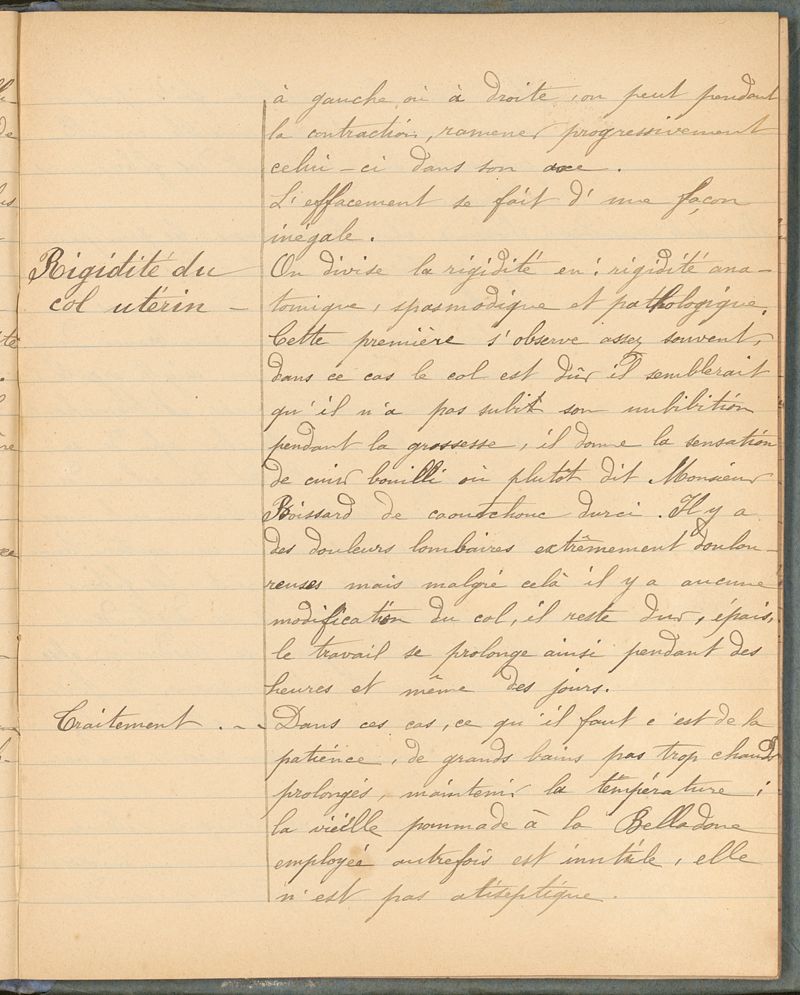 à gauche où à droite, on peut pendant
la contraction, ramener progressivement
celui-ci dans son axe.
L'effacement se fait d'une façon
inégale.
Rigidité du
col utérin -
On divise la rigidité en : rigidité ana-
tomique, spasmodique et pathologique.
Cette première s'observe assez souvent,
dans ce cas le col est dûr il semblerait
qu'il n'a pas subit son imbibition
pendant la grossesse, il donne la sensation
de cuir bouilli où plutôt dit Monsieur
Boissard de caoutchouc durci. Il y a
des douleurs lombaires extrêmement doulou-
reuses mais malgré celà il y a aucune
modification du col, il reste dur, épais,
le travail se prolonge ainsi pendant des
heures et même des jours.
Traitement . - -
Dans ces cas, ce qu'il faut c'est de la
patience, de grands bains pas trop chauds
prolongés, maintenir la température ;
la vieille pommade à la Belladone
employée autrefois est inutile, elle
n'est pas atiseptique.